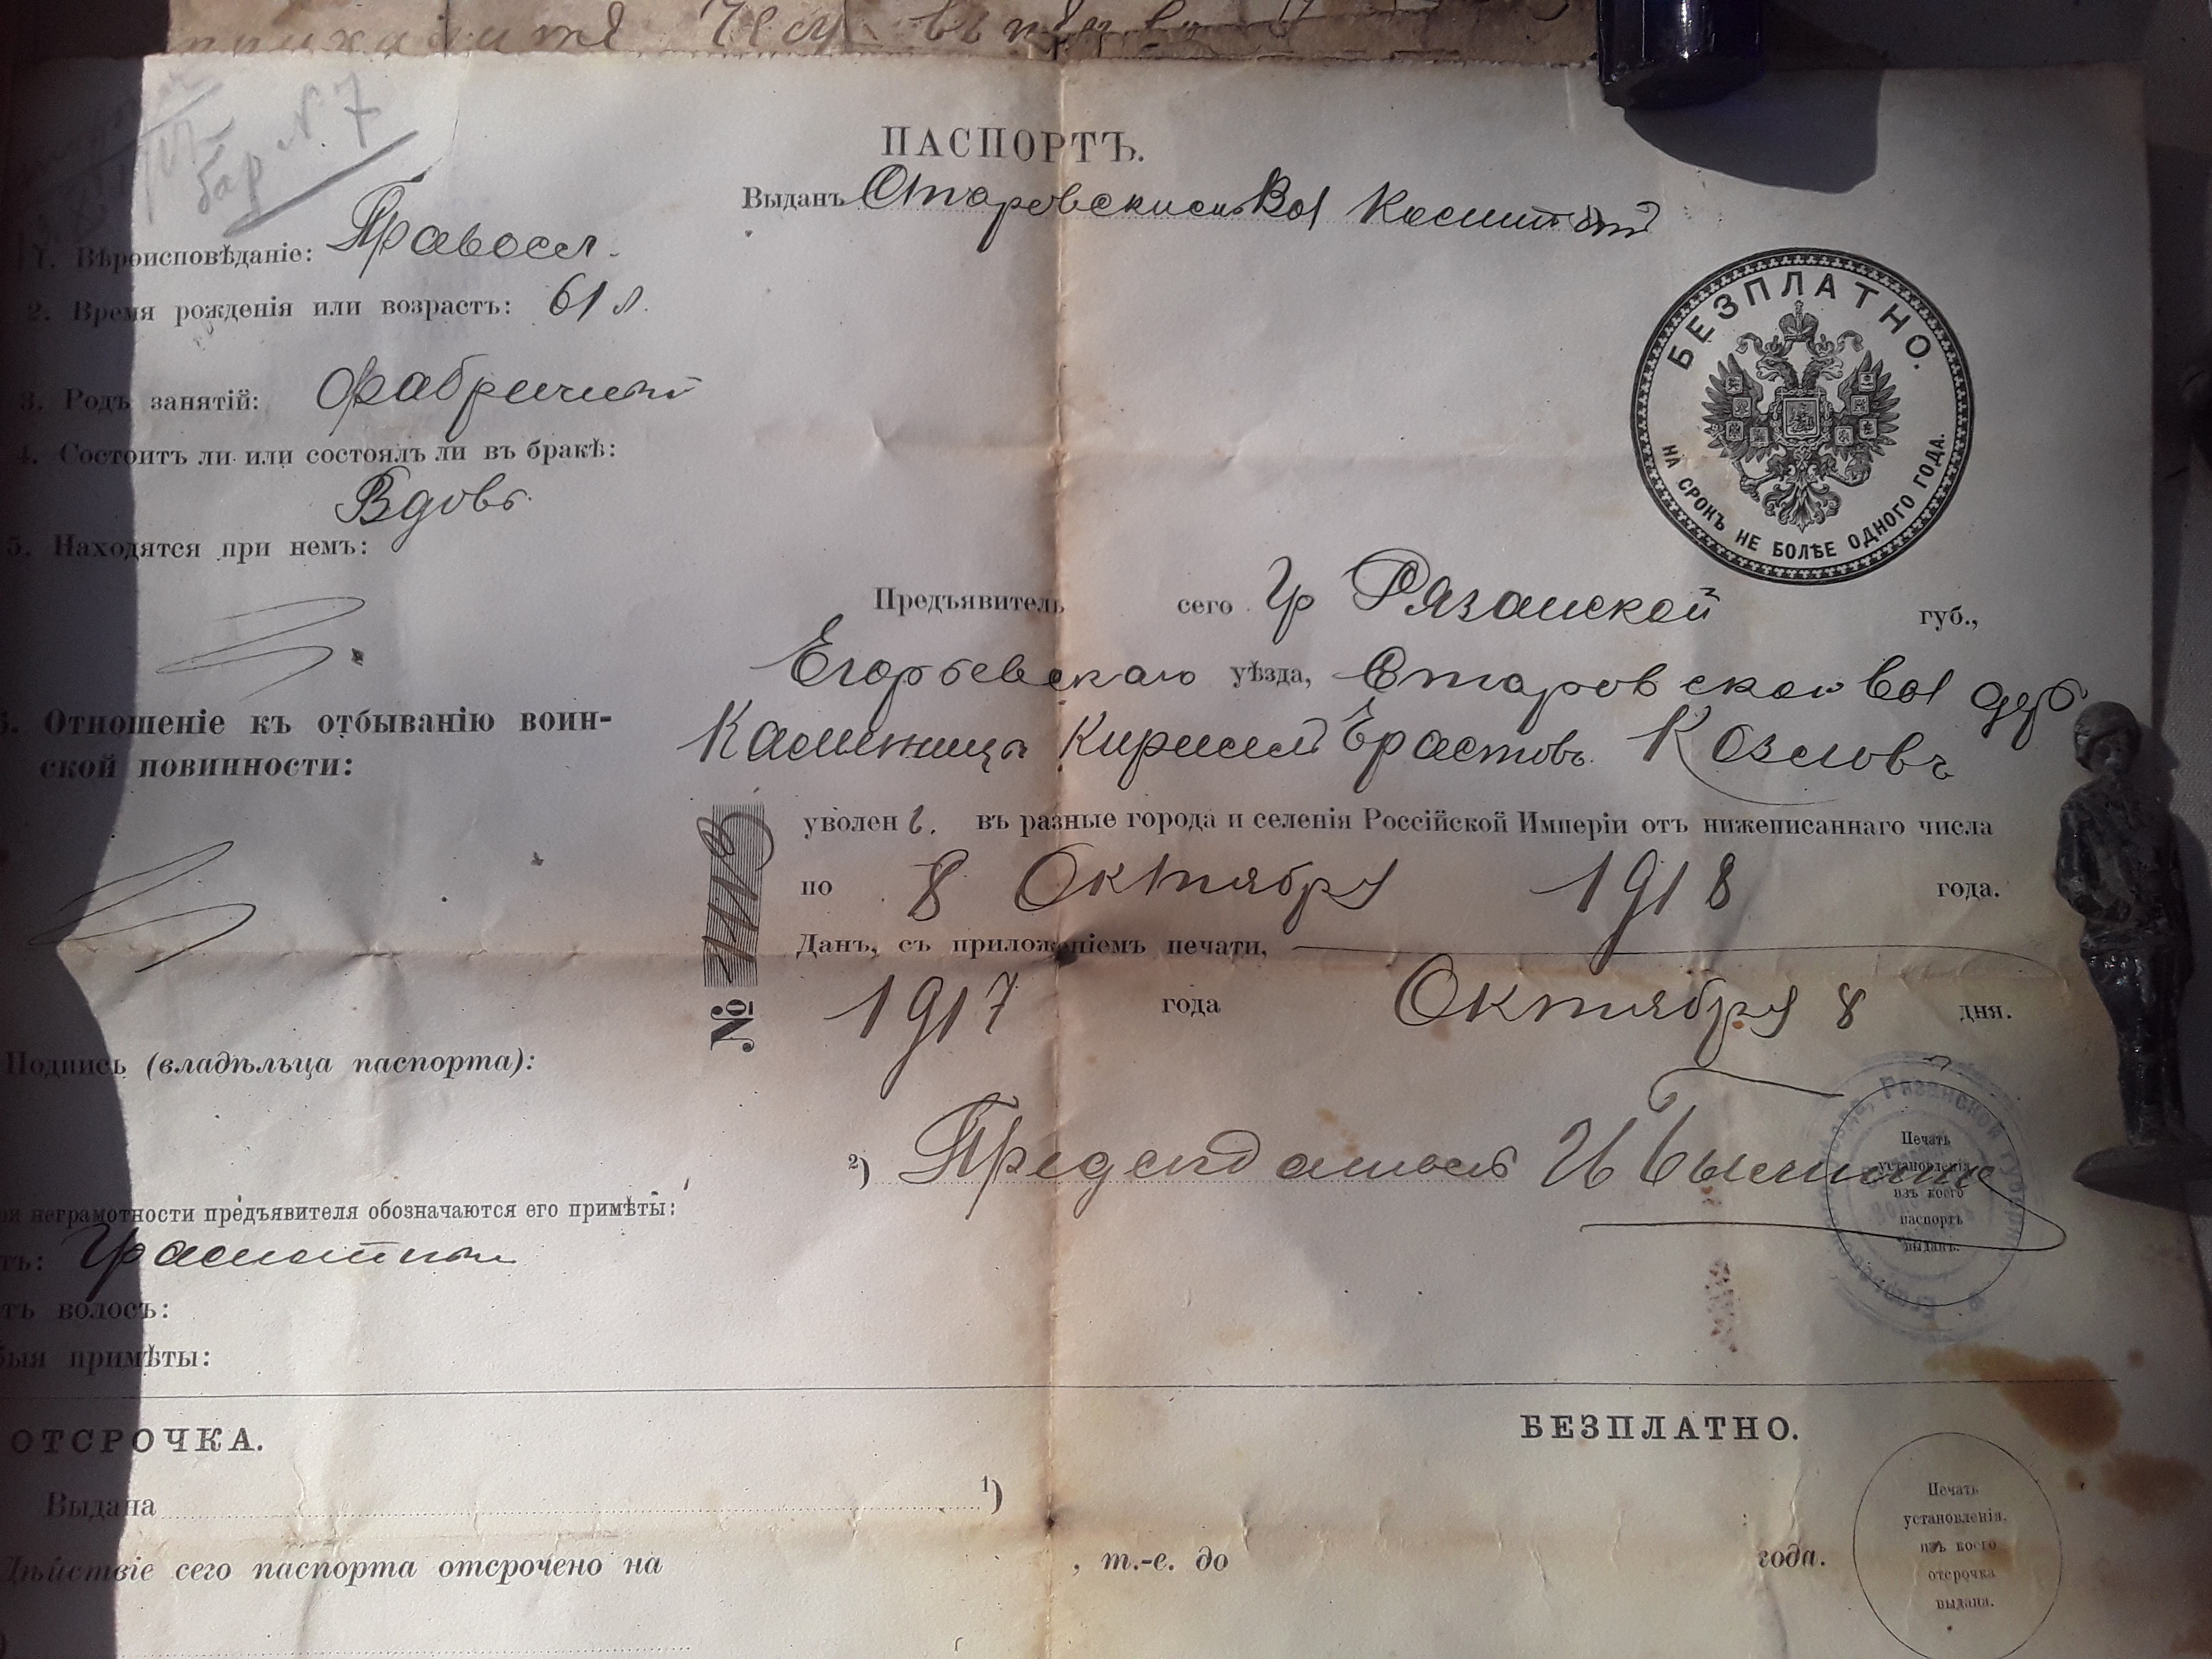 бар N. 7
ПАСПОРТЪ.
Выданъ Старовскимъ Вол Комитет
БЕЗПЛАТНО.
НА СРОКЪ НЕ БОЛѢЕ ОДНОГО ГОДА.
1. Вѣроисповѣданіе: Правосл.
2. Время рожденія или возрастъ: 61 л.
3. Родъ занятій: Фабричный
4. Состоитъ ли или состоялъ ли въ бракѣ:
Вдовъ
5. Находятся при немъ:
6. Отношеніе къ отбыванію воин-
ской повинности:
Подпись (владѣльца паспорта):
ри неграмотности предъявителя обозначаются его примѣты:
тъ: Грамотный
тъ волосъ:
быя примѣты:
Предъявитель сего Гр Рязанской губ.,
Егорьевскаго уѣзда, Старовской вол дер
Кирилл Ерастовъ Козловъ
уволенъ. въ разные города и селенія Россійской Имперіи отъ нижеписаннаго числа
по 8 Октября 1918 года.
Данъ, съ приложеніемъ печати,
1917 года Октября 8 дня.
№
2) Председатель И
Печать
установленія
изъ коего
паспортъ
выданъ.
Рязанской губерніи
ОТСРОЧКА.
БЕЗПЛАТНО.
Выдана 1)
Дѣйствіе сего паспорта отсрочено на , т.-е. до года.
Печать
установленія,
изъ коего
отсрочка
выдана.